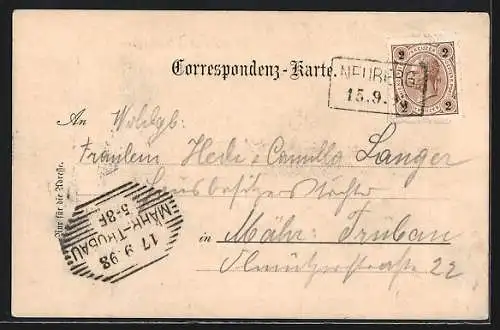 Correspondenz-Karte.
2 2
2 2
NEUBERG
15.9.
An Wohlgb:
Fräulein Hede & Camilla Langer
Hausbesitzers Töchter
in Mähr: Trübau
22
Nur für die Adresse.
MÄHR.-TRÜBAU
17 9 98
5-8F